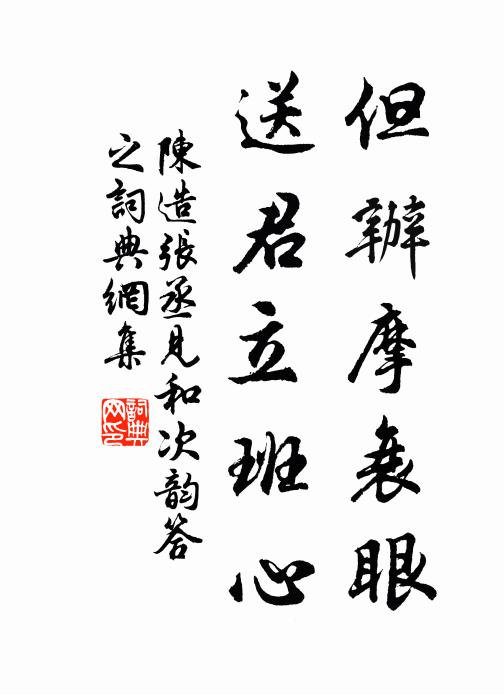 但辦摩衰眼
送君立班心
陳造張丞見和次韵答
之詞典網集
詞典
网印